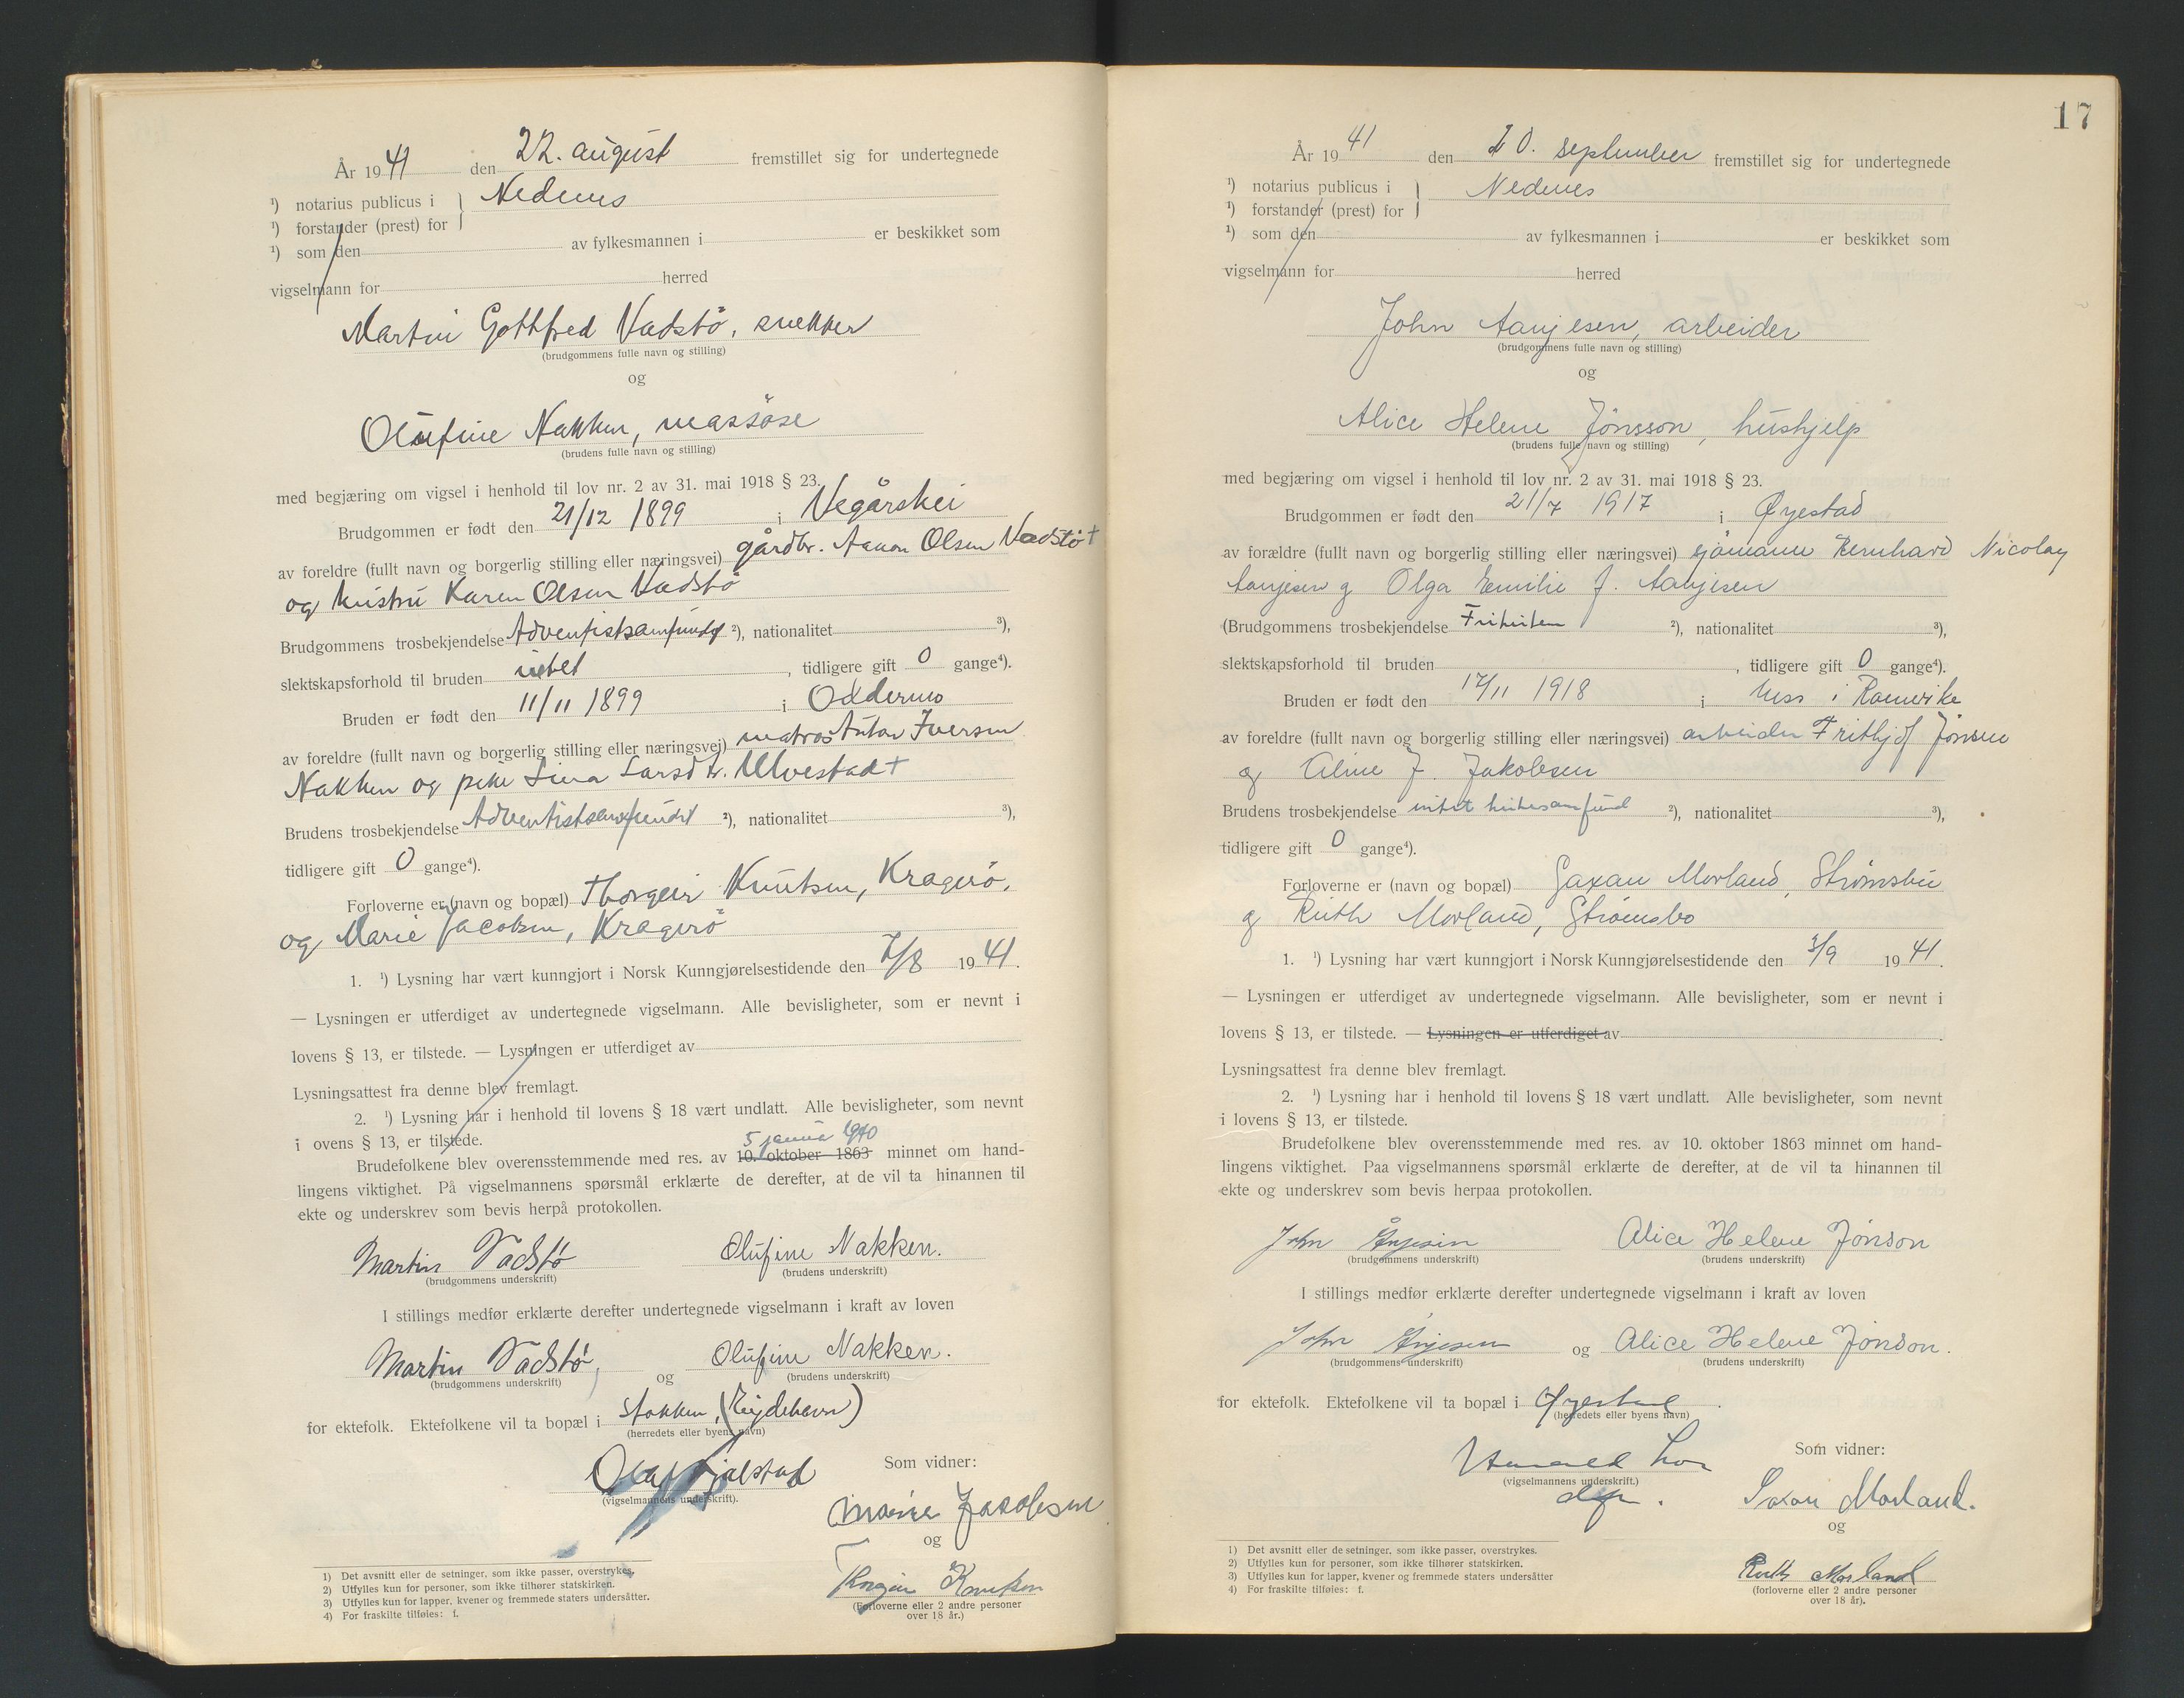 År 1941 den 22. august fremstillet sig for undertegnede
¹) notarius publicus i } Nedenes
¹) forstander (prest) for
¹) som den av fylkesmannen i er beskikket som
vigselmann for herred
Martin Gottfred Vadstö, snekker
(brudgommens fulle navn og stilling)
og
Olufine Nakken, massöse
(brudens fulle navn og stilling)
med begjæring om vigsel i henhold til lov nr. 2 av 31. mai 1918 § 23.
Brudgommen er født den 21/12 1899 i Vegårshei
av foreldre (fullt navn og borgerlig stilling eller næringsvei) gårdbr. Aanon Olsen Vadstö †
og hustru Karen Olsen Vadstö
Brudgommens trosbekjendelse Adventistsamfundet ²), nationalitet ³),
slektskapsforhold til bruden intet, tidligere gift 0 gange⁴).
Bruden er født den 11/11 1899 i Oddernes
av foreldre (fullt navn og borgerlig stilling eller næringsvei) matros Anton Iversen
Nakken og pike Lina Larsdtr. Ulvestad †
Brudens trosbekjendelse Adventistsamfundet ²), nationalitet ³),
tidligere gift 0 gange⁴).
Forloverne er (navn og bopæl) Thorgeir Knutsen, Kragerö,
og Marie Jacobsen, Kragerö
1. ¹) Lysning har vært kunngjort i Norsk Kunngjørelsestidende den 7/8 1941.
— Lysningen er utferdiget av undertegnede vigselmann. Alle bevisligheter, som er nevnt i
lovens § 13, er tilstede. — Lysningen er utferdiget av
Lysningsattest fra denne blev fremlagt.
2. ¹) Lysning har i henhold til lovens § 18 vært undlatt. Alle bevisligheter, som nevnt
i ovens § 13, er tilstede.
5 januar 1940
Brudefolkene blev overensstemmende med res. av 10. oktober 1863 minnet om hand-
lingens viktighet. På vigselmannens spørsmål erklærte de derefter, at de vil ta hinannen til
ekte og underskrev som bevis herpå protokollen.
Martin Vadstö Olufine Nakken.
(brudgommens underskrift) (brudens underskrift)
I stillings medfør erklærte derefter undertegnede vigselmann i kraft av loven
Martin Vadstö, og Olufine Nakken.
(brudgommens underskrift) (brudens underskrift)
for ektefolk. Ektefolkene vil ta bopæl i Stokken, (Eydehavn)
(herredets eller byens navn)
(vigselmannens underskrift).
Som vidner:
Marie Jacobsen
og
Thorgeir Knutsen
(Forloverne eller 2 andre personer
over 18 år.)
1) Det avsnitt eller de setninger, som ikke passer, overstrykes.
2) Utfylles kun for personer, som ikke tilhører statskirken.
3) Utfylles kun for lapper, kvener og fremmede staters undersåtter.
4) For fraskilte tilføies: f.
17
År 1941 den 20. september fremstillet sig for undertegnede
¹) notarius publicus i } Nedenes
¹) forstander (prest) for
¹) som den av fylkesmannen i er beskikket som
vigselmann for herred
John Aanjesen, arbeider
(brudgommens fulle navn og stilling)
og
Alice Helene Jönsson, hushjelp
(brudens fulle navn og stilling)
med begjæring om vigsel i henhold til lov nr. 2 av 31. mai 1918 § 23.
Brudgommen er født den 21/7 1917 i Øyestad
av forældre (fullt navn og borgerlig stilling eller næringsvei) sjömann Bernhard Nicolay
Aanjesen og Olga Emilie f. Aanjesen
(Brudgommens trosbekjendelse Frikirken ²), nationalitet ³),
slektskapsforhold til bruden , tidligere gift 0 gange⁴).
Bruden er født den 17/11 1918 i Nes i Romerike
av foreldre (fullt navn og borgerlig stilling eller næringsvei) arbeider Frithjof Jönsen
og Aline f. Jakobsen
Brudens trosbekjendelse intet kirkesamfund ²), nationalitet ³),
tidligere gift 0 gange⁴).
Forloverne er (navn og bopæl) Saxan Morland, Strömsbu
og Ruth Morland, Strömsbo
1. ¹) Lysning har vært kunngjort i Norsk Kunngjørelsestidende den 3/9 1941.
— Lysningen er utferdiget av undertegnede vigselmann. Alle bevisligheter, som er nevnt i
lovens § 13, er tilstede. — Lysningen er utferdiget av
Lysningsattest fra denne blev fremlagt.
2. ¹) Lysning har i henhold til lovens § 18 vært undlatt. Alle bevisligheter, som nevnt
i lovens § 13, er tilstede.
Brudefolkene blev overensstemmende med res. av 10. oktober 1863 minnet om hand-
lingens viktighet. Paa vigselmannens spørsmål erklærte de derefter, at de vil ta hinannen til
ekte og underskrev som bevis herpaa protokollen.
John Ånjesen Alice Helene Jönson
(brudgommens underskrift) (brudens underskrift)
I stillings medfør erklærte derefter undertegnede vigselmann i kraft av loven
John Ånjesen og Alice Helene Jönson.
(brudgommens underskrift) (brudens underskrift)
for ektefolk. Ektefolkene vil ta bopæl i Øyestad.
(herredets eller byens navn)
(vigselmannens underskrift.)
Som vidner:
Saxan Morland.
og
Ruth Morland
(forloverne eller 2 andre personer
over 18 år).
1) Det avsnitt eller de setninger, som ikke passer, overstrykes.
2) Utfylles kun for personer, som ikke tilhører statskirken.
3) Utfylles kun for lapper, kvener og fremmede staters undersåtter
4) For fraskilte tilføies: f.